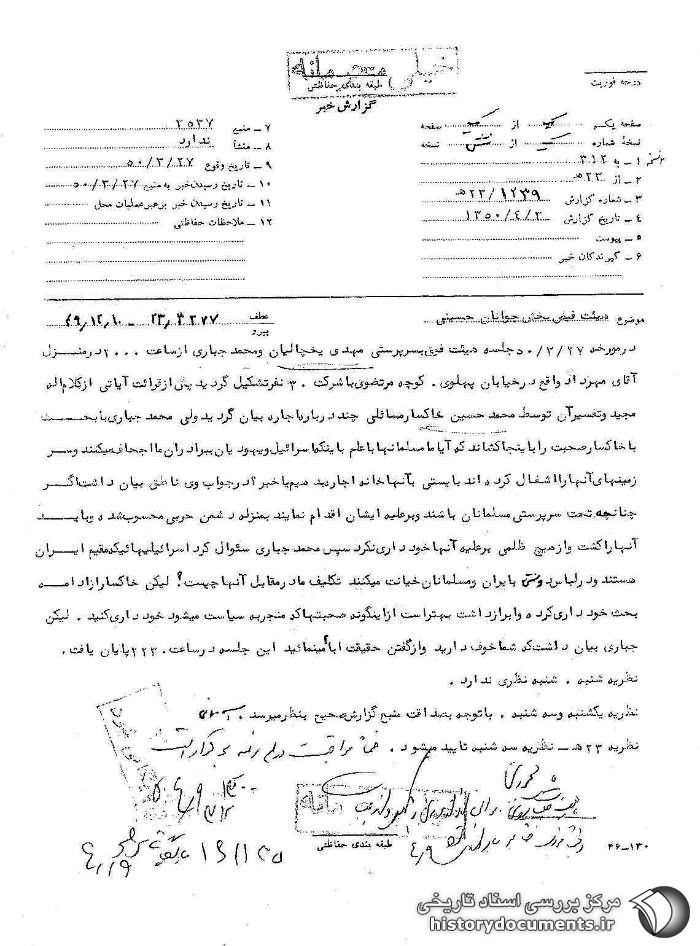 خیلی محرمانه
طبقه بندی حفاظتی
گزارش خبر
درجه فوریت
صفحه یکم از یک صفحه
نسخهٔ شماره یک از شش نسخه
۱ ـ به ۳۱۲
۲ ـ از ۲۳هـ
۳ ـ شماره گزارش ۲۳/۱۲۳۹هـ
۴ ـ تاریخ گزارش ۱۳۵۰/۴/۲
۵ ـ پیوست
۶ ـ گیرندگان خبر
۷ ـ منبع ۲۵۳۷
۸ ـ منشأ ندارد
۹ ـ تاریخ وقوع ۵۰/۳/۲۷
۱۰ ـ تاریخ رسیدن خبر به منبع ۵۰/۳/۲۷
۱۱ ـ تاریخ رسیدن خبر برهبرعملیات محل
۱۲ ـ ملاحظات حفاظتی
موضوع هیئت فیض بخش جوانان حسینی
عطف ۲۳٫۴۲۷۷ ـ ۴۹٫۱۲٫۱۰
پیرو
درمورخه ۵۰/۳/۲۷ جلسه هیئت فوق بسرپرستی مهدی یخچالیان ومحمد جباری ازساعت ۲۰۰۰ درمنزل
آقای مهرداد واقع درخیابان پهلوی . کوچه مرتضوی باشرکت ۳۰ نفرتشکیل گردید پس ازقرائت آیاتی ازکلام اله
مجید وتفسیرآن توسط محمد حسین خاکسارمسائلی چند درباره اجاره بیان گردید ولی محمد جباری بابحث
باخاکسارصحبت را باینجا کشاند که آیا ما مسلمانها باعلم باینکه اسرائیل ویهودیان ببرادران ما اجحاف میکنند وسر
زمینهای آنها را اشغال کرده اند بایستی بآنها خانه اجاره بدهیم یا خیر؟ درجواب وی ناطق بیان داشت اگر
چنانچه تحت سرپرستی مسلمانان باشند وبرعلیه ایشان اقدام نمایند بمنزله دشمن حربی محسوب شده وباید
آنها را کشت وازهیچ ظلمی برعلیه آنها خودداری نکرد سپس محمد جباری سئوال کرد اسرائیلیهائیکه مقیم ایران
هستند ودرلباس دوستی بایران ومسلمانان خیانت میکنند تکلیف ما درمقابل آنها چیست؟ لیکن خاکسارازادامه
بحث خودداری کرده وابرازداشت بهتراست ازاینگونه صحبتها که منجربه سیاست میشود خودداری کنید . لیکن
جباری بیان داشت که شما خوف دارید وازگفتن حقیقت اباءمینمائید این جلسه درساعت ۲۲۳۰ پایان یافت .
نظریه شنبه . شنبه نظری ندارد .
نظریه یکشنبه وسه شنبه . باتوجه بصداقت منبع گزارش صحیح بنظرمیرسد .
نظریه ۲۳هـ ـ نظریه سه شنبه تایید میشود .
طبقه بندی حفاظتی
۴۶-۱۳۰
مرکز بررسی اسناد تاریخی
historydocuments.ir